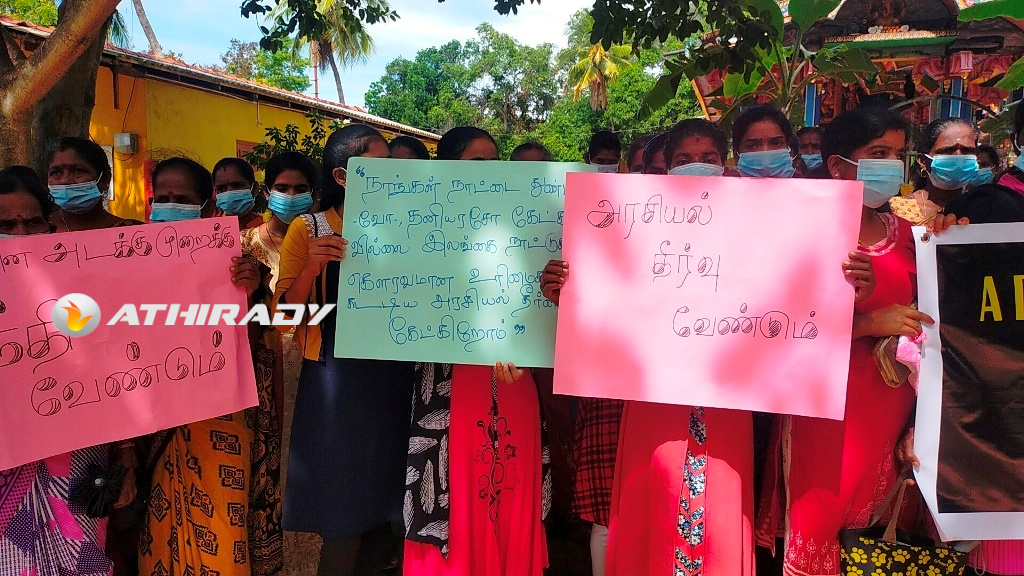 அடக்குமுறைக்கு
வேண்டும்
ATHIRADY
"நாங்கள் நாட்டை துண்
-வோ-, தனியரசோ கேட்க
வில்லை இலங்கை நாட்டு
கௌரவமான உரிமை
கூடிய அரசியல் தீர்
கேட்கிறோம்"
அரசியல்
தீர்வு
வேண்டும்